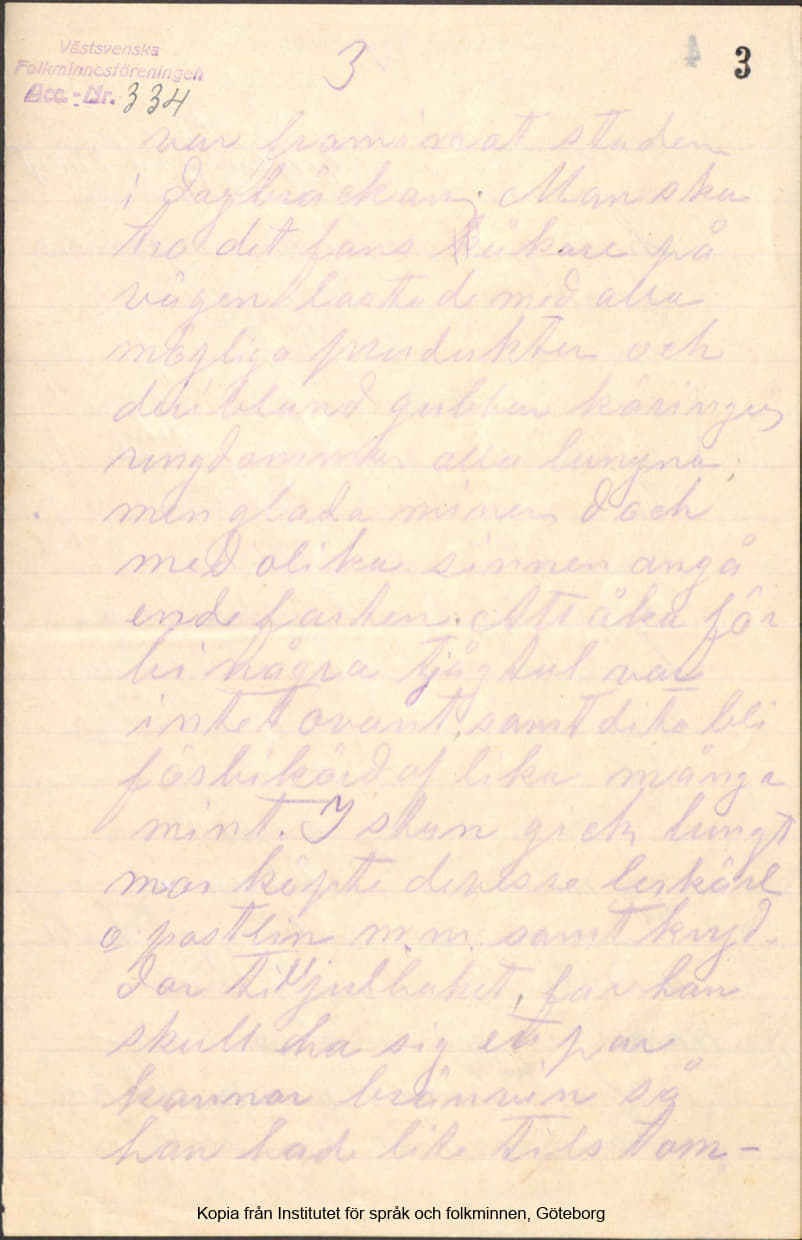 Västsvenska
Folkminnesföreningen
Acc.-Nr. 334
3
4
3
var framm mot staden
i dagbräckan. Man ska
tro det fans åkare på
vägen lastade med alla
möjliga produkter och
deribland gubbar käringar
ungdommar alla lungna,
men glada miner doch
med olika sinnen angå
ende farten. Att åka för
bi några tjågtul var
intet ovant, samt dito bli
förbikörd af lika många
mint. I stan gick lungt
mor köpte deresse lerkärl
o postlin m.m. samt kryd-
dor till julbaket, far han
skull ha sig ett par
kannor brännvin så
han had lite tils tom-
Kopia från Institutet för språk och folkminnen, Göteborg